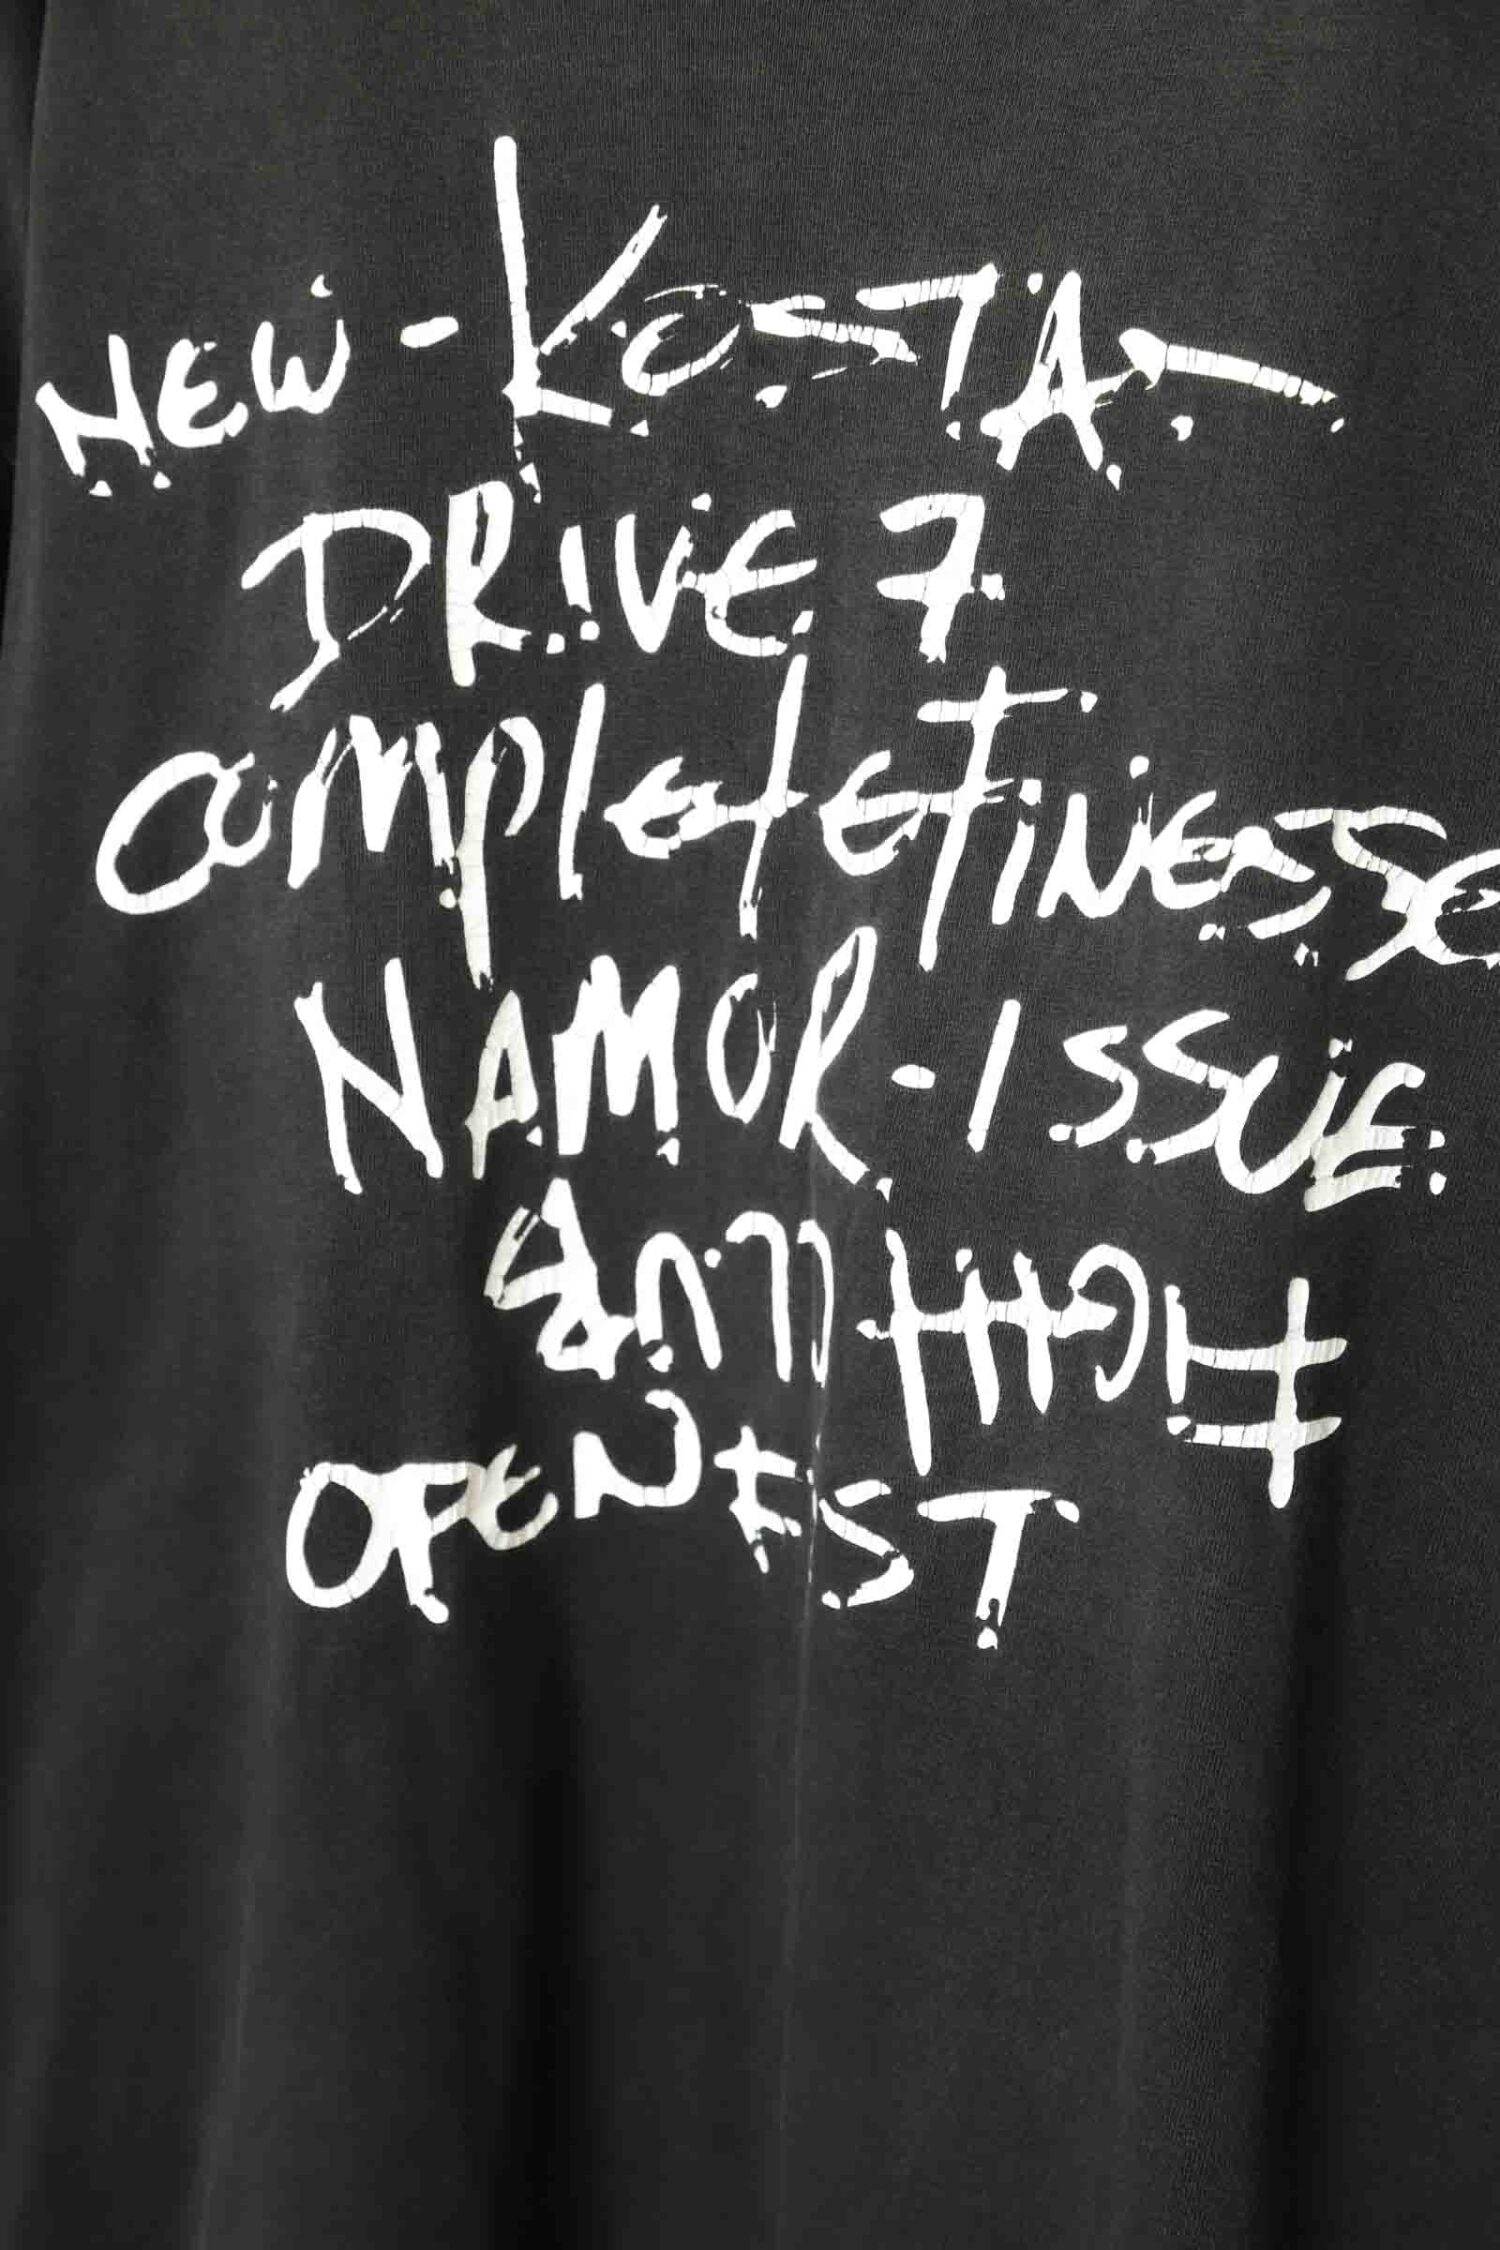 NEW-KOSTA-
DRIVE 7
COMPLETE FINESSE
NAMOR-ISSUE.
OPENEST